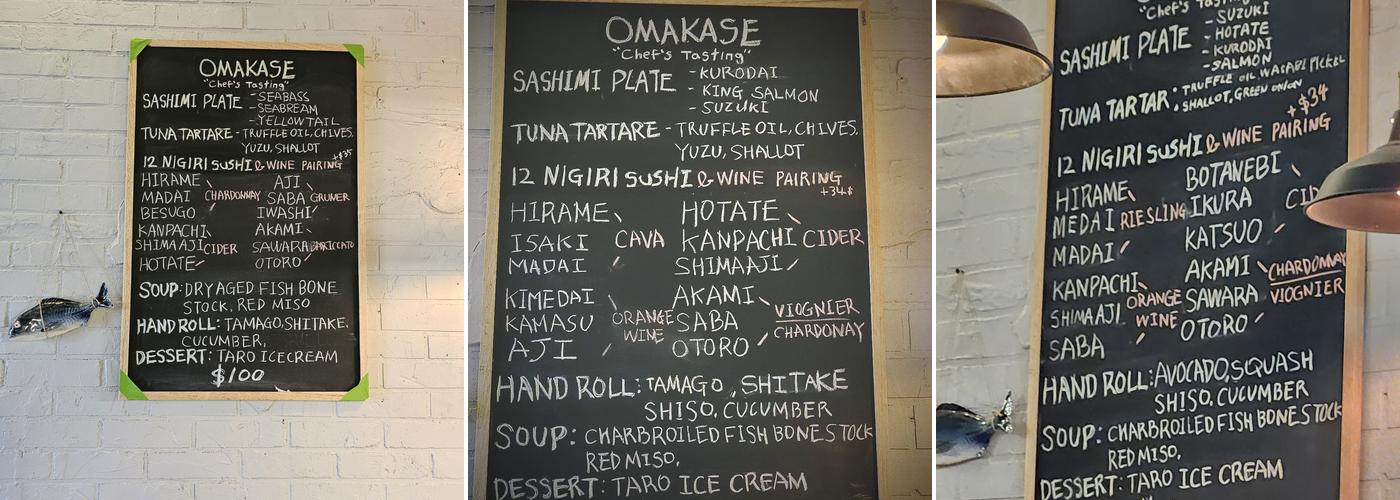 OMAKASE
"Chef's Tasting"
SASHIMI PLATE - SEABASS
- SEABREAM
- YELLOWTAIL
TUNA TARTARE - TRUFFLE OIL, CHIVES,
YUZU, SHALLOT
+$35
12 NIGIRI SUSHI & WINE PAIRING
HIRAME AJI
MADAI CHARDONNAY SABA GRUNER
BESUGO IWASHI
KANPACHI AKAMI
SHIMAAJI CIDER SAWARA
HOTATE OTORO
SOUP: DRY AGED FISH BONE
STOCK, RED MISO
HAND ROLL: TAMAGO, SHITAKE,
CUCUMBER,
DESSERT: TARO ICE CREAM
$100
OMAKASE
"Chef's Tasting"
SASHIMI PLATE - KURODAI
- KING SALMON
- SUZUKI
TUNA TARTARE - TRUFFLE OIL, CHIVES,
YUZU, SHALLOT
12 NIGIRI SUSHI & WINE PAIRING
+34$
HIRAME HOTATE
ISAKI CAVA KANPACHI CIDER
MADAI SHIMAAJI
KIMEDAI AKAMI VIOGNIER
KAMASU ORANGE WINE SABA CHARDONAY
AJI OTORO
HAND ROLL: TAMAGO, SHITAKE
SHISO, CUCUMBER
SOUP: CHARBROILED FISH BONE STOCK
RED MISO,
DESSERT: TARO ICE CREAM
"Chef's Tasting"
- SUZUKI
SASHIMI PLATE - HOTATE
- KURODAI
- SALMON
TUNA TARTAR • TRUFFLE OIL WASABI PICKEL
• SHALLOT, GREEN ONION
+$34
12 NIGIRI SUSHI & WINE PAIRING
HIRAME BOTANEBI
MEDAI RIESLING IKURA CID
MADAI KATSUO
KANPACHI AKAMI CHARDONNAY
SHIMAAJI ORANGE WINE SAWARA VIOGNIER
SABA OTORO
HAND ROLL: AVOCADO, SQUASH
SHISO, CUCUMBER
SOUP: CHARBROILED FISH BONE STOCK
RED MISO,
DESSERT: TARO ICE CREAM